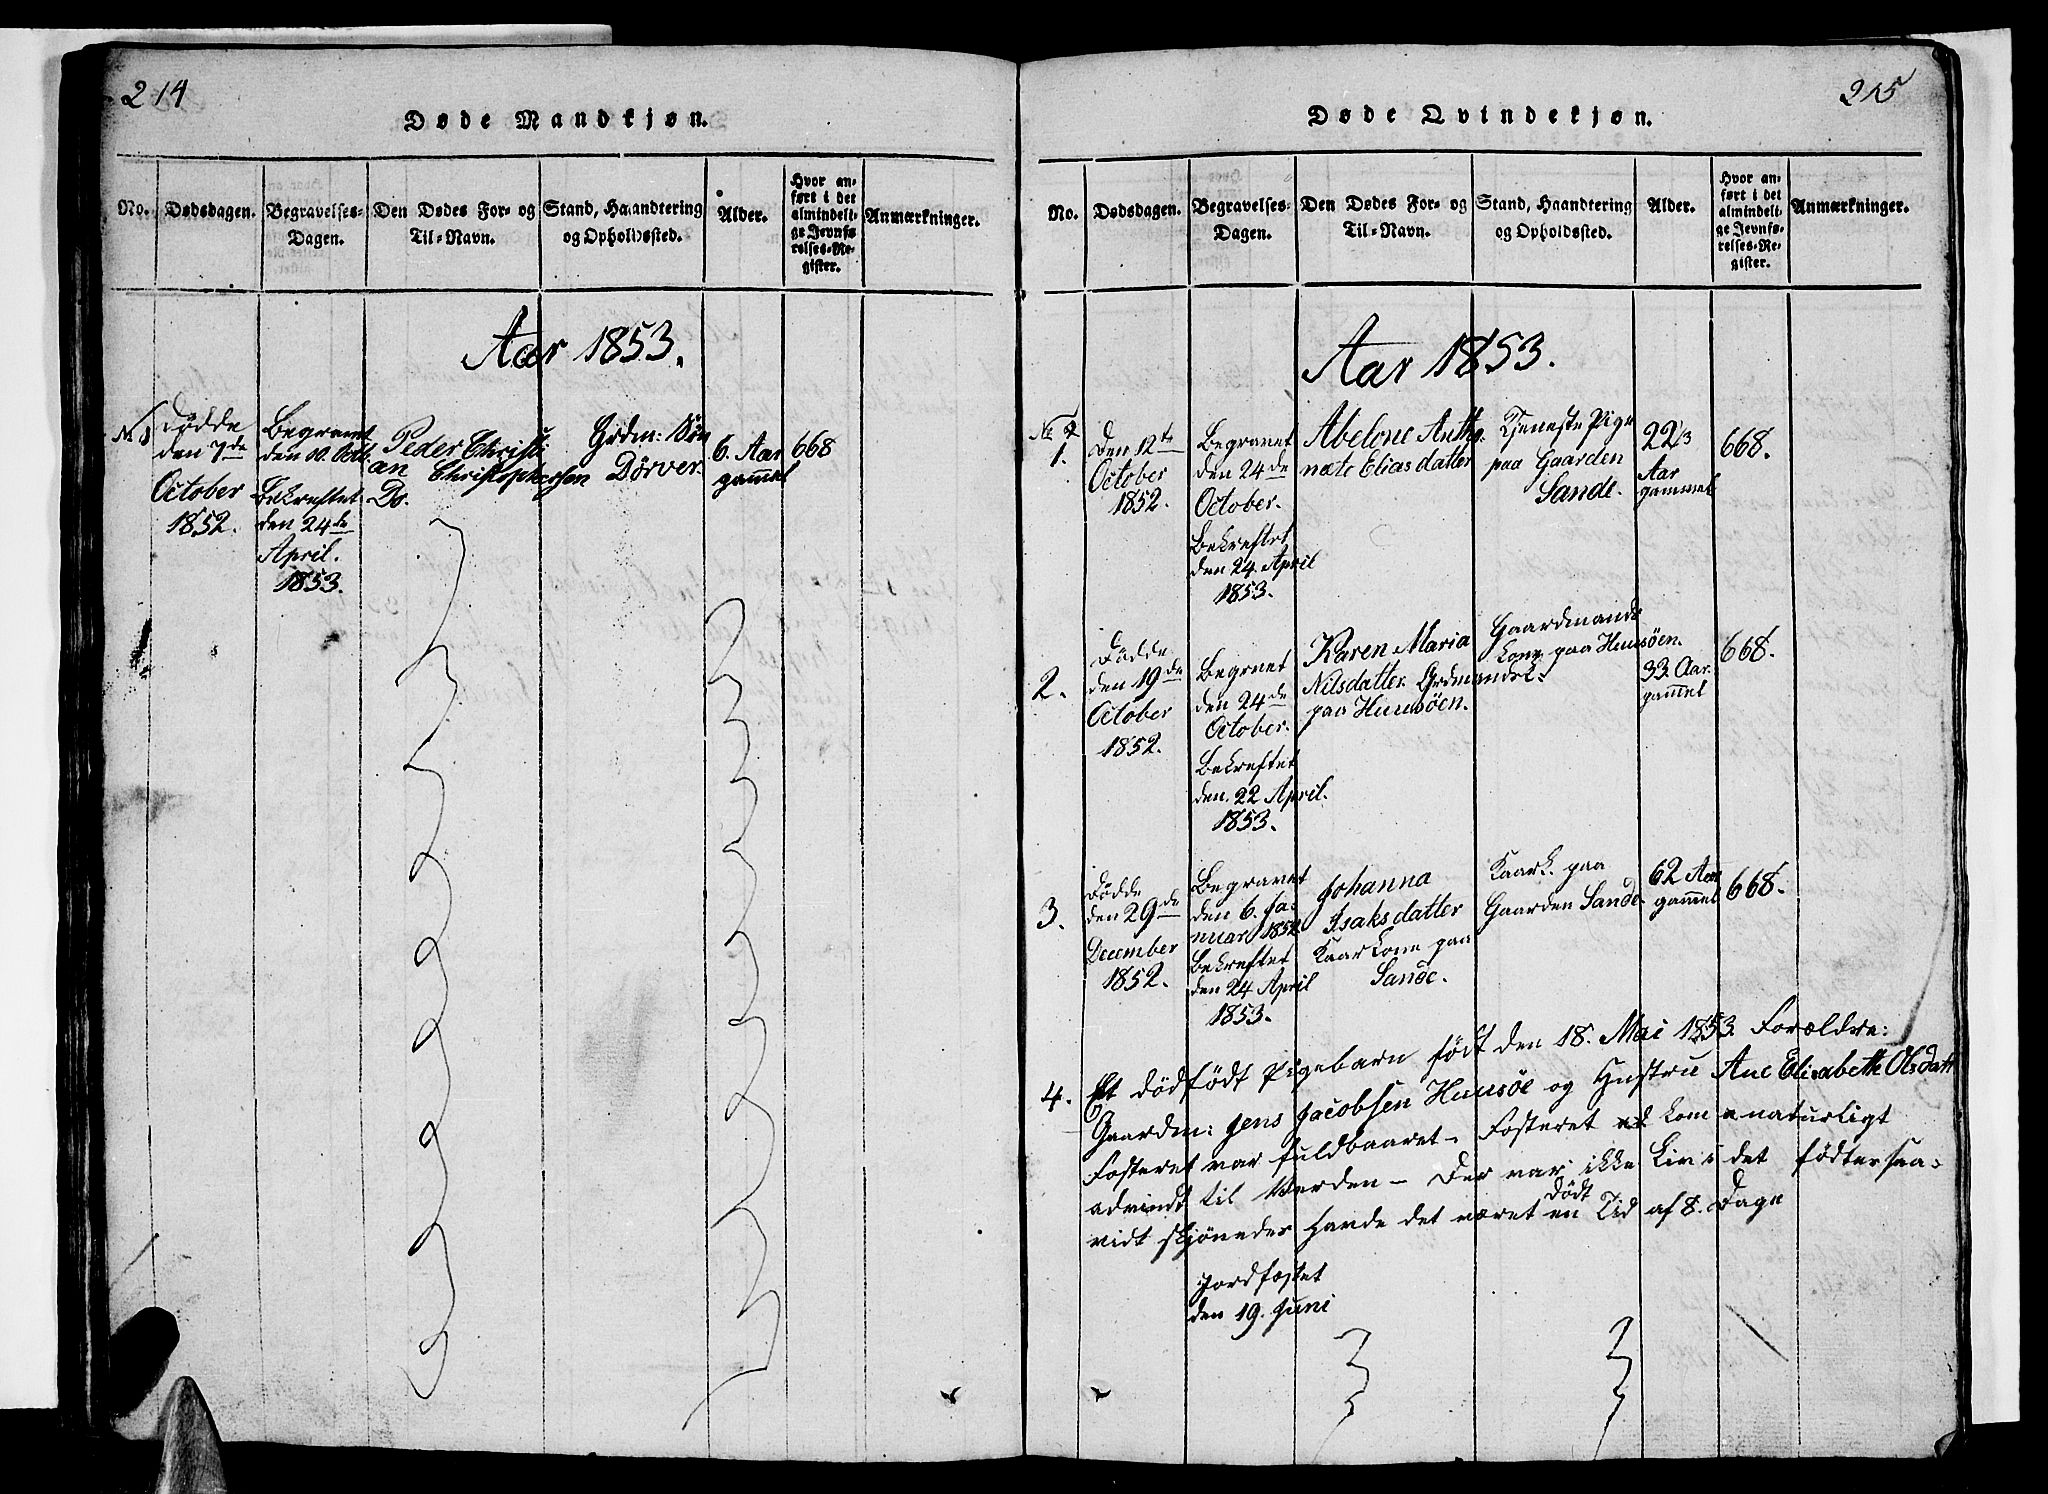 214
Døde Mandkjøn.
No.
Dødsdagen.
Begravelses-
Dagen.
Den Dødes For- og
Til-Navn.
Stand, Haandtering
og Opholdssted.
Alder.
Hvor an-
ført i det
almindeli-
ge Jevnfø-
relses-Re-
gister.
Anmærkninger.
Aar 1853.
Dødde
den 7de
October
1852.
Begravet
den 10. Octb.
Bekreftet
den 24de
April.
1853.
Peder Christi
an Christophersen
Do.
Grdm: Søn
Dörver.
6. Aar
gammel
668
215
Døde Qvindekjøn.
No.
Dødsdagen.
Begravelses-
Dagen.
Den Dødes For- og
Til-Navn.
Stand, Haandtering
og Opholdssted.
Alder.
Hvor an-
ført i det
almindeli-
ge Jevnfø-
relses-Re-
gister.
Anmærkninger.
Aar 1853.
№
1.
Den 12te
October
1852.
Begravet
den 24de
October.
Bekreftet
den 24. April
1853.
Abelone Antho-
nete Eliasdatter
Tjeneste Pige
paa Gaarden
Sande.
22⅓
Aar
gammel
668.
2.
Dødde
den 19de
October
1852.
Begravet
den 24de
October.
Bekreftet
den. 22 April.
1853.
Karen Maria
Nilsdatter. Grdmandsk.
paa Huusöen.
Gaardmands
Kone paa Huusöen.
33. Aar.
gammel
668.
3.
Dødde
den 29de
December
1852.
Begravet
den 6. Ja-
nuar 1852
Bekreftet
den 24 April
1853.
Johanna
Isaksdatter
Kaarkone paa
Sande.
Kaark. paa
Gaarden Sande
62 Aar
gammel
668.
4.
Et dödfödt Pigebarn födt den 18. Mai 1853. Forældre:
Gaardm: Jens Jacobsen Huusöe og Hustru Ane Elisabeth Olsdatt
Fosteret var fuldbaaret – Fosteret kom naturligt
advindt til Verden – Der var ikke Liv i det födte saa-
vidt skjönedes havde det været Dödt en Tid af 8. Dage
Jordfæstet
den 19. Juni